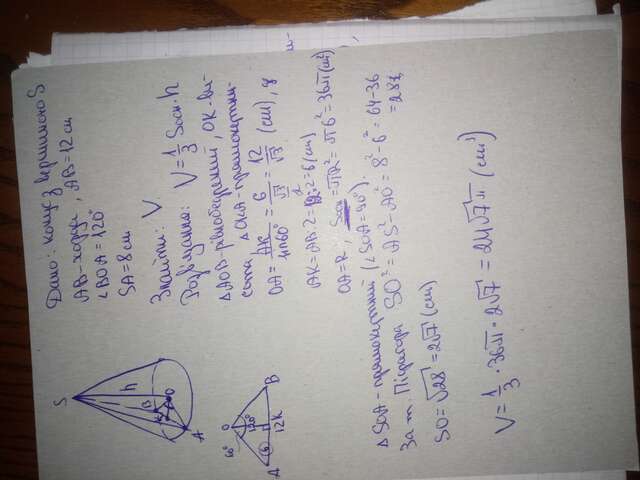 Дано: конус з вершиною S
AB-хорда, AB=12см
∠BOA=120°
SA=8см
Знайти: V
Розв'язання: V=1/3 Sосн·h
△AOB-рівнобедрений, OK-ви-
сота, △OKA-прямокутний.
OA=AK/sin60°=6/(√3/2)=12/√3 (см),
AK=AB:2=12:2=6(см)
OA=R, Sосн=πR²=π6²=36π(см²)
△SOA-прямокутний (∠SOA=90°).
За т. Піфагора SO²=AS²-AO²=8²-6²=64-36
=28
SO=√28=2√7(см)
V=1/3·36π·2√7=24√7π(см³)
S
h
B
O
A
O
60°
120°
A
6
B
12